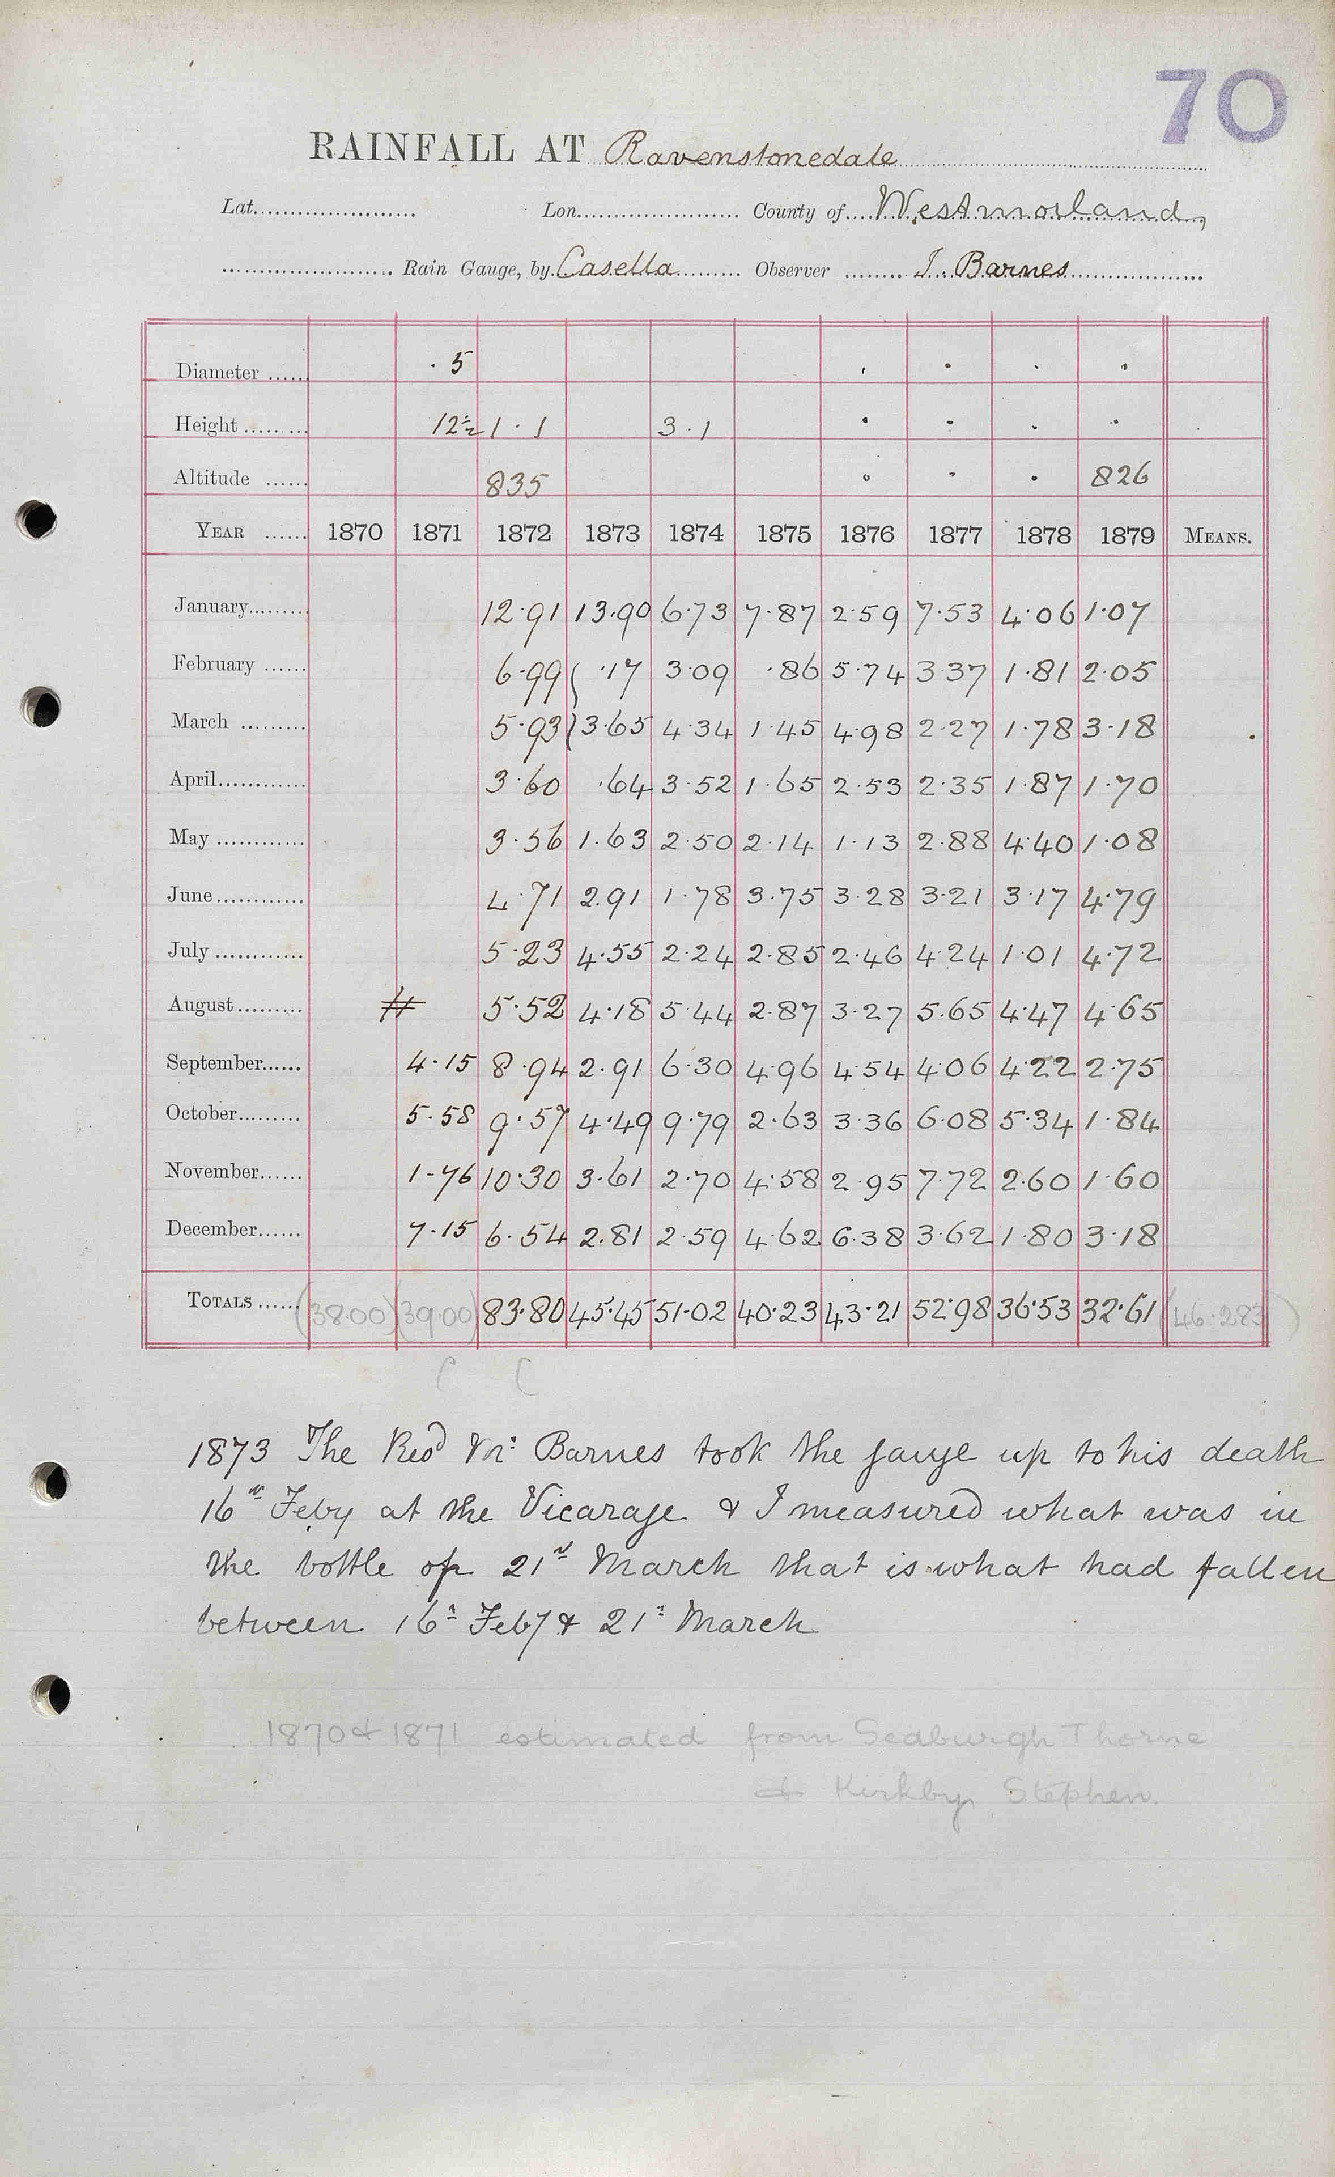 70
RAINFALL AT Ravenstonedale
Lat. Lon. County of Westmorland,
Rain Gauge, by Casella Observer J. Barnes
Diameter 5
Height 12½ 1·1 3·1
Altitude 835 826
YEAR 1870 1871 1872 1873 1874 1875 1876 1877 1878 1879 MEANS.
January 12·91 13·90 6·73 7·87 2·59 7·53 4·06 1·07
February 6·99 ·17 3·09 ·86 5·74 3·37 1·81 2·05
March 5·93 3·65 4·34 1·45 4·98 2·27 1·78 3·18
April 3·60 ·64 3·52 1·65 2·53 2·35 1·87 1·70
May 3·56 1·63 2·50 2·14 1·13 2·88 4·40 1·08
June 4·71 2·91 1·78 3·75 3·28 3·21 3·17 4·79
July 5·23 4·55 2·24 2·85 2·46 4·24 1·01 4·72
August 5·52 4·18 5·44 2·87 3·27 5·65 4·47 4·65
September 4·15 8·94 2·91 6·30 4·96 4·54 4·06 4·22 2·75
October 5·58 9·57 4·49 9·79 2·63 3·36 6·08 5·34 1·84
November 1·76 10·30 3·61 2·70 4·58 2·95 7·72 2·60 1·60
December 7·15 6·54 2·81 2·59 4·62 6·38 3·62 1·80 3·18
TOTALS (38·00) (39·00) 83·80 45·45 51·02 40·23 43·21 52·98 36·53 32·61 (46·283)
1873 The Revd Mr. Barnes took the gauge up to his death
16th Feby at the Vicarage & I measured what was in
the bottle on 21st March that is what had fallen
between 16th Feby & 21st March
1870 & 1871 estimated from Sedburgh Thorne
& Kirkby Stephen.